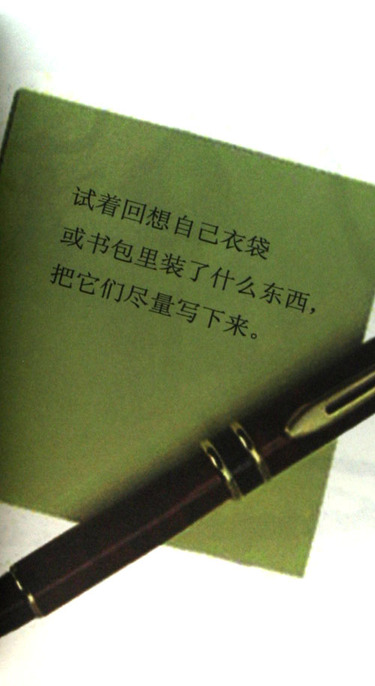 试着回想自己衣袋
或书包里装了什么东西，
把它们尽量写下来。